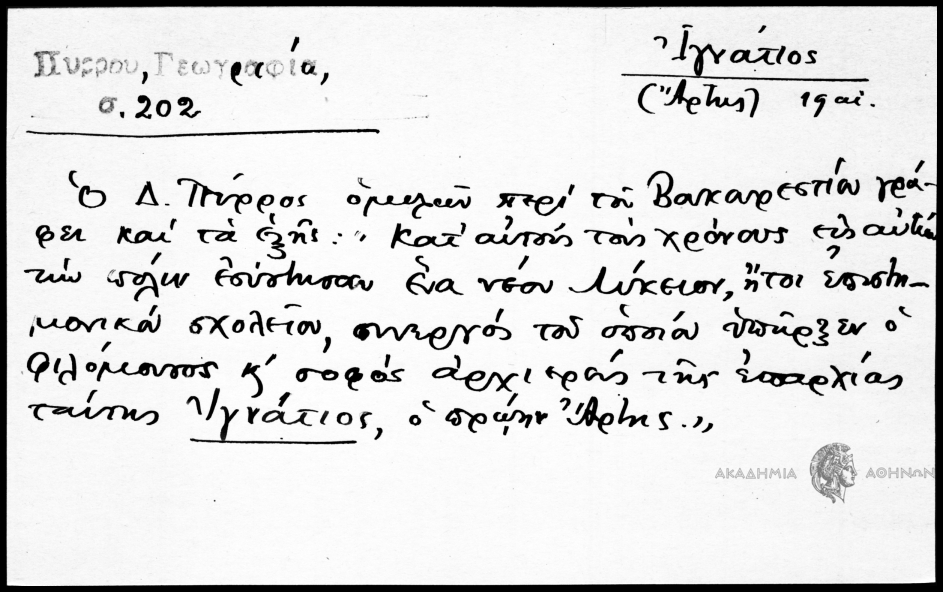 Πύρρου, Γεωγραφία,
σ. 202
Ἰγνάτιος
(Ἄρτης) 19 αἰ.
Ὁ Δ. Πύρρος ὁμιλῶν περί τοῦ Βουκουρεστίου γρά-
φει καί τὰ ἑξῆς: „ Κατ' αὐτούς τούς χρόνους εἰς αὐτήν
τήν πόλιν ἐσύστησαν ἕνα νέον Λύκειον, ἤτοι ἐπιστη-
μονικόν σχολεῖον, συνεργός τοῦ ὁποίου ὑπῆρξεν ὁ
φιλόμουσος κ' σοφός ἀρχιερεύς τῆς ἐπαρχίας
ταύτης Ἰγνάτιος, ὁ πρῴην Ἄρτης.„
ΑΚΑΔΗΜΙΑ ΑΘΗΝΩΝ